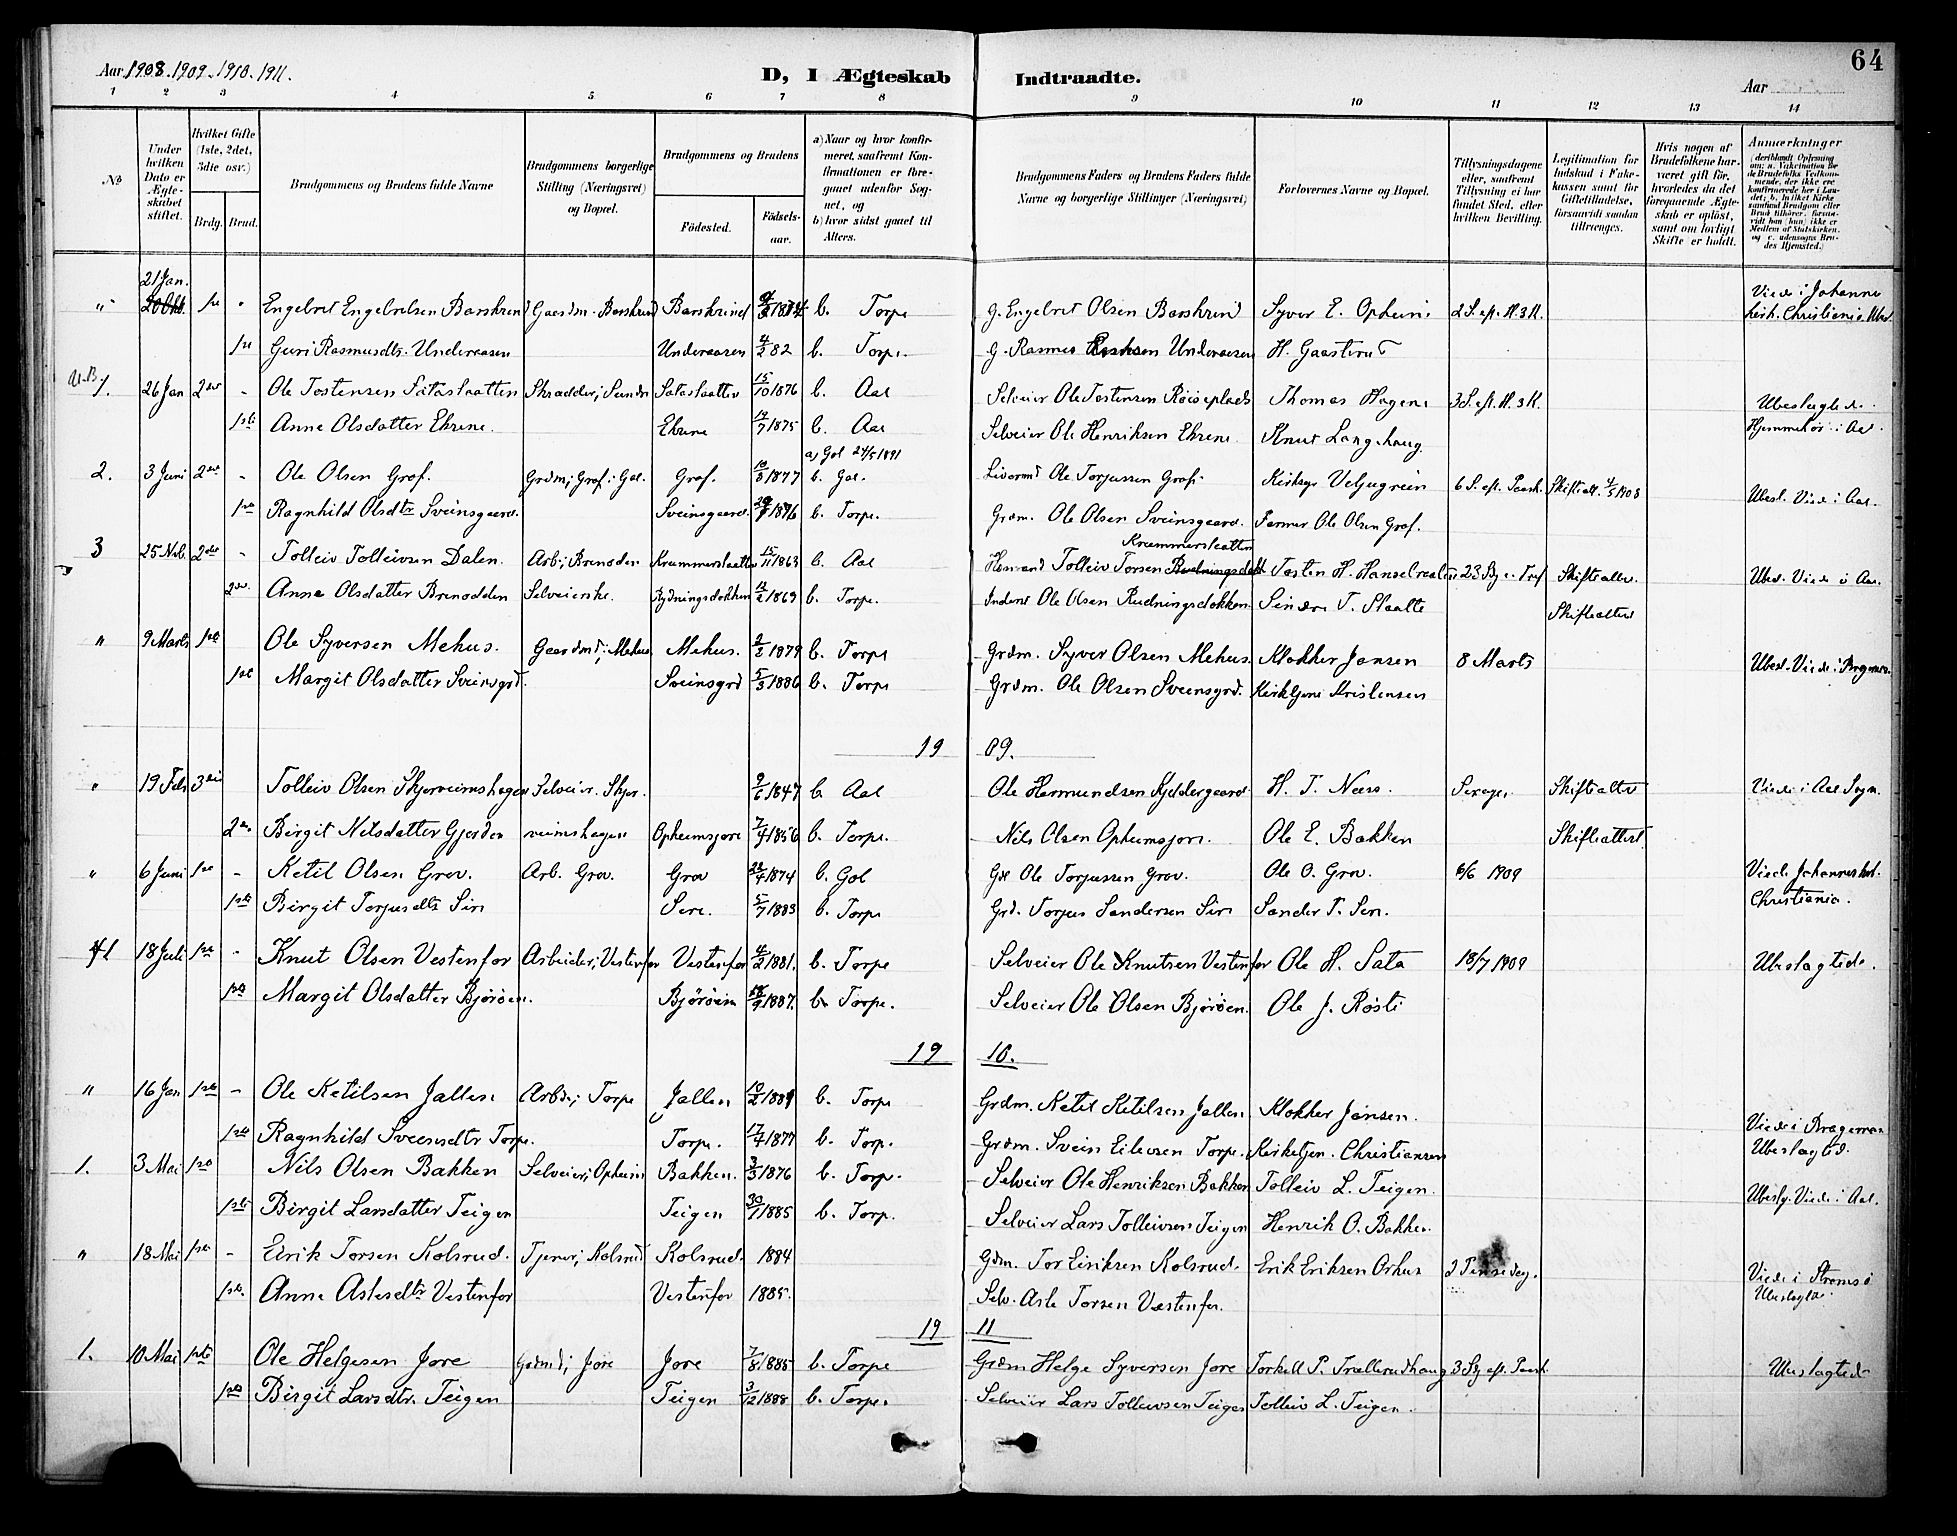 64
Aar 1908. 1909. 1910. 1911.
D, I Ægteskab Indtraadte.
Aar
1 2 3 4 5 6 7 8 9 10 11 12 13 14
No
Under hvilken Dato er Ægteskabet stiftet.
Hvilket Gifte (1ste, 2det, 3die osv.)
Brdg. Brud.
Brudgommens og Brudens fulde Navne
Brudgommens borgerlige Stilling (Næringsvei) og Bopæl.
Brudgommens og Brudens
Fødested.
Fødselsaar.
a) Naar og hvor konfirmeret, saafremt Konfirmationen er foregaaet udenfor Sognet, og
b) hvor sidst gaaet til Alters.
Brudgommens Faders og Brudens Faders fulde Navne og borgerlige Stillinger (Næringsvei)
Forlovernes Navne og Bopæl.
Tillysningsdagene eller, saafremt Tillysning ei har fundet Sted, efter hvilken Bevilling.
Legitimation for Indskud i Enkekassen samt for Giftetilladelse, forsaavidt saadan tiltrænges.
Hvis nogen af Brudefolkene har været gift før, hvorledes da det foregaaende Ægteskab er opløst, samt om lovligt Skifte er holdt.
Anmærkninger (deriblandt Oplysning om: a. Vakcination for de Brudefolks Vedkommende, der ikke ere konfirmerede her i Landet; b. hvilket Kirkesamfund Brudgom eller Brud tilhører, forsaavidt han (hun) ikke er Medlem af Statskirken, og c. udensogns Brudes Hjemsted.)
" 21 Jan. 20 Okt. 1ste " Engebret Engebretsen Barskrind Gaardm. Barskrind Barskrind 1874 b. Torpe G. Engebret Olsen Barskrind Syver E. Opheim 2 S. ef. H. 3 K. Viede i Johannes kirk. Christiania. Ubsl.
1ste Guri Rasmusdtr. Underaasen Underaasen 4/2 82 b. Torpe. G. Rasmus Underaasen H. Gaasterud
1. 26 Jan 2det - Ole Tostensen Sataslaatten Skrædder, Sundre Sataslaatten 15/10 1876 b. Aal Selveier Ole Tostensen Roiseplads Thomas Hagene 3 S. ef. H. 3 K. Ubeslagtede.
1ste Anne Olsdatter Ehrene. Ehrene 17/7 1875 b. Aal Selveier Ole Henriksen Ehrene. Knut Langehaug. Hjemmehør. i Aal.
2. 3 Juni 2det - Ole Olsen Grof. Grdm; Grof i Gol. Grof. 10/3 1877 a) Gol 24/5 1891 b. Gol. Livormd Ole Torjussen Grof. Kirkesgr Velgugrein 6 S. ef. Paask. Skifteatt. 4/5 1908 Ubesl. Viede i Aal.
1ste Ragnhild Olsdtr Sveinsgaard. Sveinsgaard. 1876 b. Torpe. Grdm. Ole Olsen Sveinsgaard. Farmer Ole Olsen Grof.
3 25 Nob. 2det - Tolleiv Tolleivsen Dalen. Arb; Brenodden Krammerslaatten 15/11 1863 b. Aal Husmand Tolleiv Torsen Krammerslaatten Tosten H. Hanselraalien 23 S. e. Tref. Skifteattes. Ubesl. Viede i Aal.
2det. Anne Olsdatter Brenodden Selveierske. Rydningsdokken 12/2 1869 b. Torpe. Inderst Ole Olsen Rudningsdokken. Sindre T. Slaatte Skifteattest
" 9 Marts 1ste Ole Syversen Mehus. Gaardmd; Mehus Mehus. 2/2 1879 b. Torpe Grdm. Syver Olsen Mehus. Klokker Jansen 8 Marts Ubesl. Viede i Bragernes.
1ste Margit Olsdatter Sveinsgrd. Sveinsgrd 5/3 1886 b. Torpe Grdm. Ole Olsen Sveinsgrd. Kirketjene Kristensen
1909.
" 19 Feb 3die Tolleiv Olsen Skjerveimshagen Selveier. Skjerveimshagen 9/6 1847 b. Aal Ole Hermundsen Kyldergaard. H. T. Næss. Skifteattest Viede i Aal Sogn.
2den Birgit Nilsdatter Gjorden Opheimsjore 7/7 1856 b. Torpe. Nils Olsen Opheimsjore. Ole E. Bakken Skifteattest
" 6 Juni 1ste - Ketil Olsen Grov. Arb. Grov. Grov 22/4 1874 b. Gol Gbr Ole Torjussen Grov. Ole O. Grov. 6/6 1909 Viede Johanneskk. Christiania.
1ste Birgit Torjusdtr Sire Sere. 5/7 1883 b. Torpe Grd. Torjus Sandersen Sire Sander T. Sere.
1 18 Juli 1ste - Knut Olsen Vestenfor Arbeider; Vestenfor Vestenfor 4/2 1881. b. Torpe Selveier Ole Knutsen Vestenfor Ole H. Sata 18/7 1909 Ubeslagtede.
1ste Margit Olsdatter Bjørøen. Bjørøen 18/9 1887. b. Torpe. Selveier Ole Olsen Bjørøen. Ole J. Røsti
1910.
" 16 Jan 1ste - Ole Ketilsen Jallen Arbd; Torpe Jallen 10/2 1889 b. Torpe Grdm. Ketil Ketilsen Jallen Klokker Jansen.
1ste Ragnhild Sveensdtr Torpe. Torpe. 17/4 1877 b. Torp. Grdm. Svein Eilevsen Torpe. Kirketjen. Christiansen Viede i Bragernes Ubeslagted.
1. 3 Mai 1ste Nils Olsen Bakken Selveier; Opheim Bakken. 3/3 1876 b. Torp. Selveier Ole Henriksen Bakken Tolleiv L. Teigen.
1ste Birgit Larsdatter Teigen Teigen 30/1 1885 b. Torp. Selveier Lars Tolleivsen Teigen Henrik O. Bakken. Ubeslg. Viede i Aal.
" 18 Mai 1ste - Eirik Torsen Kolsrud. Tjener; Kolsrud Kolsrud. 1884 Gdm. Tor Eiriksen Kolsrud. Erik Eriksen Orhus 2 Pinsedag. Viede i Strømsø Ubeslagte.
1ste. Anne Aslesdtr Vestenfor Vestenfor 1885. Selv. Asle Torsen Vestenfor.
1911
1. 10 Mai 1ste Ole Helgesen Jore Grdmd; Jore Jore 7/8 1885 b. Torpe Grdm Helge Syversen Jore Torkell P. Trællerudhaug 3 S. ef. Paask. Ubeslagtede
1ste Birgit Larsdtr. Teigen Teigen 3/12 1888 b. Torpe. Selveier Lars Tolleivsen Teigen Tolleiv L. Teigen.